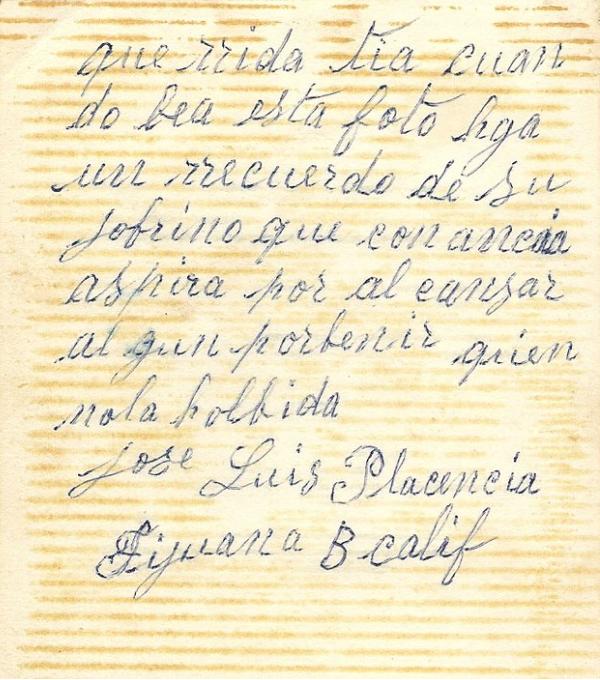 que rrida tia cuan
do bea esta foto hga
un rrecuerdo de su
sobrino que con ancia
aspira por al canzar
al gun porbenir quien
nola holbida
jose Luis Placencia
Tijuana B calif